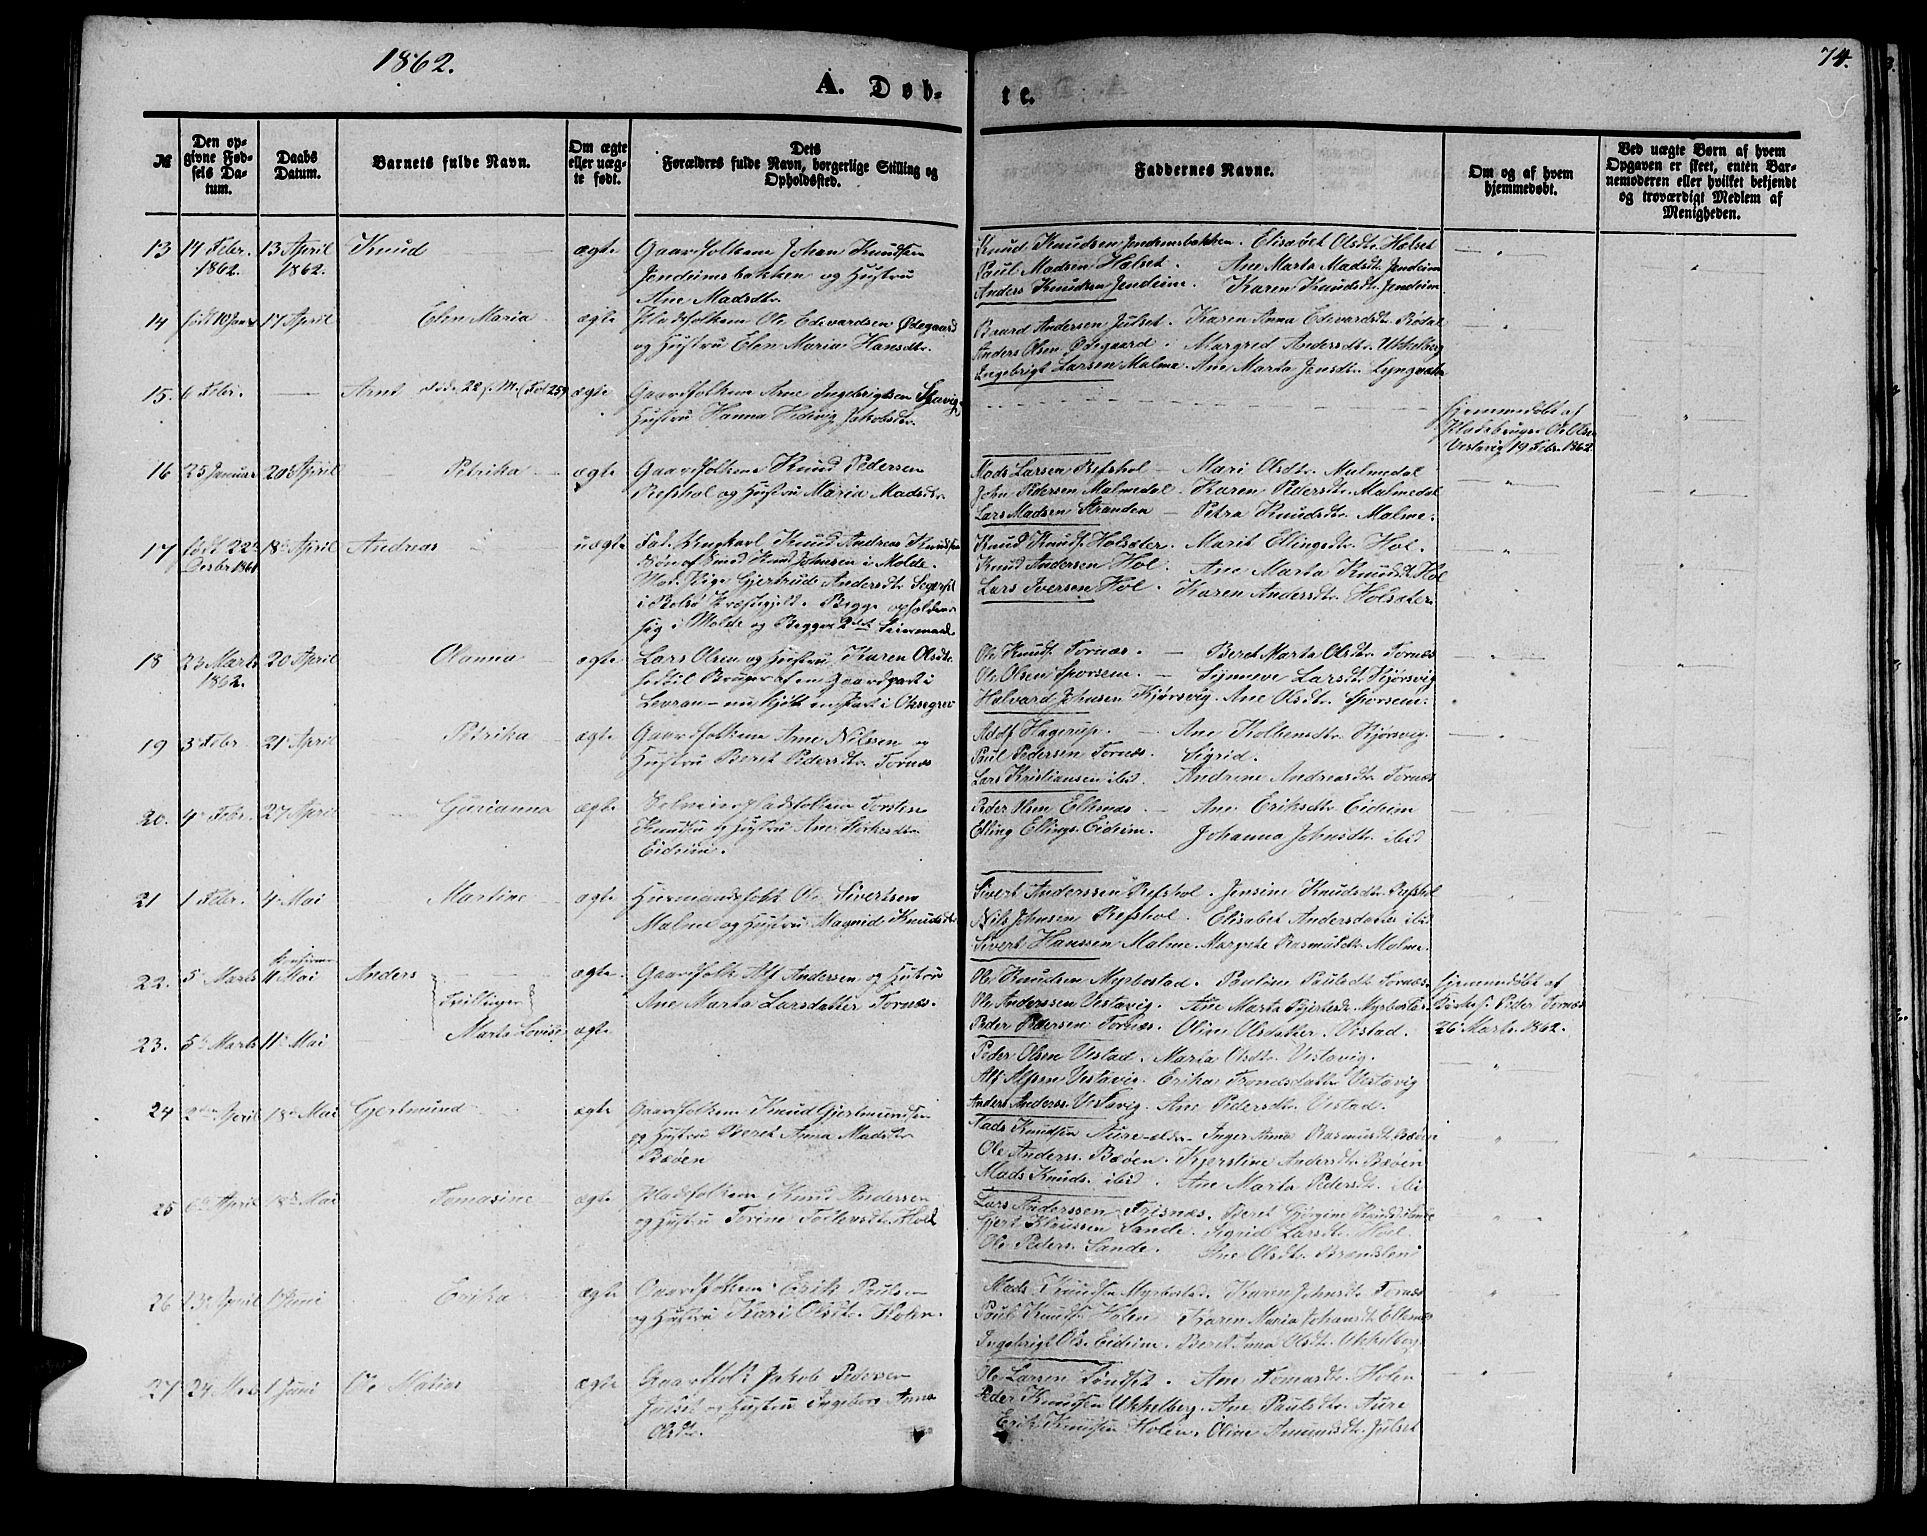 1862.
74.
A. Døb-
te.
№
Den op-
givne Fød-
sels Da-
tum.
Daabs
Datum.
Barnets fulde Navn.
Om ægte
eller uæg-
te født.
Dets
Forældres fulde Navn, borgerlige Stilling og
Opholdssted.
Faddernes Navne.
Om og af hvem
hjemmedøbt.
Ved uægte Børn af hvem
Opgaven er skeet, enten Bar-
nemoderen eller hvilket bekjendt
og troværdigt Medlem af
Menigheden.
13 14 Febr. 1862. 13 April 1862. Knud ægte
Gaardfolkene Johan Knudsen
Jendeimsbakken og Hustru
Ane Madsdtr.
Knud Knudsen Jendeimsbakken. Elisabet Olsdtr. Halset
Paul Madsen Halset. Ane Marta Madsdtr. Jendeim
Anders Knudsen Jendeim. Karen Knudsdtr. Jendeim
14 født 10 Jan 17 April Elen Maria ægte
Pladsfolkene Ole Edevardsen Ødegaard
og Hustru Elen Maria Hansdtr.
Baard Andersen Julset. Karen Anna Edevardsdtr. Rødal
Anders Olsen Ødegaard. Margred Andersdtr. Ukkelberg
Ingebrigt Larsen Malme. Ane Marta Jensdtr. Lyngvæter
15. 6 Febr. Arnt ægte
Gaardfolkene Arne Ingebrigtsen
Hustru Hanna Hedvig Jakobsdtr.
Hjemmedøbt af
Pladsbruger Ole Olsen
Vestavig 19 Febr. 1862.
16 25 Januar 20 April Petrika ægte
Gaardfolkene Knud Pedersen
Refshol og Hustru Maria Madsdtr
Mads Larsen Refshol. Mari Olsdtr. Malmedal
John Pedersen Malmedal. Karen Pedersdtr. Malmedal
Lars Madsen Stranden Petra Knudsdtr. Malme.
17 født 22 Decbr 1861 18 April Andreas uægte
Fad. Ungkarl Knud Andreas Knudsen
Søn af Smed Knud Johnsen i Molde.
Mod. Pige Gjertrude Andersdtr.
i Bolsø Præstegjeld. Begge opholdende
sig i Molde og Begges 2det Leiermaal.
Knud Knuds. Holsæter. Marit Ellingsdtr. Hol.
Knud Andersen Hol. Ane Marta Knudsdtr. Hol
Lars Iversen Hol. Karen Andersdtr. Holsæter
18 23 Marts 1862. 20 April Olanna ægte
Lars Olsen og Hustru Karen Olsdtr.
hidtil Bruger af en Gaardpart i
Levran - nu kjøbt en Part i
Ole Knuds. Tornæs. Beret Marta Olsdtr. Tornæs
Ole Olsen Sporsem. Synneve Larsdtr. Bjørsvig
Halvard Johnsen Bjørsvig. Ane Olsdtr. Sporsem
19 3 Febr. 21 April Petrika ægte
Gaardfolkene Arne Nilsen og
Hustru Beret Pedersdtr. Tornæs
Adolf Hagerup. Ane Bjørsvig.
Paul Pedersen Tornæs. Sigrid.
Lars Kristiansen ibid. Andrine Andreasdtr. Tornæs
20. 4 Febr. 27 April Gurianna ægte
Torsten
Knuds. og Hustru Ane
Eideim.
Peder Olsen Ellenæs Ane Eriksdtr. Eideim
Elling Ellings. Eideim. Johanna Johnsdtr. ibid
21 1 Febr. 4 Mai Martine ægte
Husmandsfolk Ole Sivertsen
Malme og Hustru Magnild Knudsdtr.
Sivert Anderssen Refshol. Jensine Knudsdtr. Refshol
Nils Johnsen Refshol. Elisabet Andersdatter ibid
Sivert Hanssen Malme. Margrete Rasmusdtr. Malme.
22. 5 Marts 11 Mai Anders ægte.
Tvillinger
Gaardfolk Alf Andersen og Hustru
Ane Marta Larsdatter Tornæs.
Ole Knudsen Myrbostad. Pauline Paulsdtr. Tornæs.
Ole Anderssen Vestavig. Ane Marta Myrbostad
Peder Pedersen Tornæs. Oline Olsdatter. Vestad.
Hjemmedøbt af
Peder Tornæs
26 Marts 1862.
23. 5 Marts 11 Mai Marta Lovise ægte
Peder Olsen Vestad. Marta Olsdtr. Vestavig.
Alf Alfsen Vestavig. Erika Trondsdatter Vestavig
Anders Anderss. Vestavig. Ane Pedersdtr. Vestad.
24 2 April 18 Mai Gjertmund ægte
Gaardfolkene Knud Gjertmundsen
og Hustru Beret Anna Madsdtr
Bøen
Mads Knudsen Aure. Inger Anna Rasmusdtr. Bøen
Ole Anderss. Bøen. Kjerstine Andersdtr. Bøen
Mads Knuds. ibid. Ane Marta Pedersdtr. ibi
25 6 April 18 Mai Tomasine ægte
Pladsfolkene Knud Andersen
og Hustru Torine Hol
Lars Anderssen Frisnæs. Beret
Gjert Klaussen Sande. Sigrid Larsdtr. Hol
Ole Peders. Sande. Ane Olsdtr. Brandsleni
26 13 April 1 Juni Erika ægte
Gaardfolkene Erik Paulsen
og Hustru Kari Olsdtr. Holen.
Mads Knudsen Myrbostad. Karen Johnsdtr. Tornæs
Paul Knuds. Holen Karen Maria Johansdtr Ellenæs
Ingebrigt Ols. Eideim. Beret Anna Olsdtr. Ukkelberg
27 24 Marts 1 Juni Ole Matias ægte
Gaardfolk Jakob Pedersen
Julset og Hustru Ingeborg Anna
Olsdtr.
Ole Larsen Tøndset. Ane Tomasdtr. Holen
Peder Knudsen Ukkelberg. Ane Paulsdtr. Aure
Erik Knudsen Holen. Oline Amundsdtr. Julset